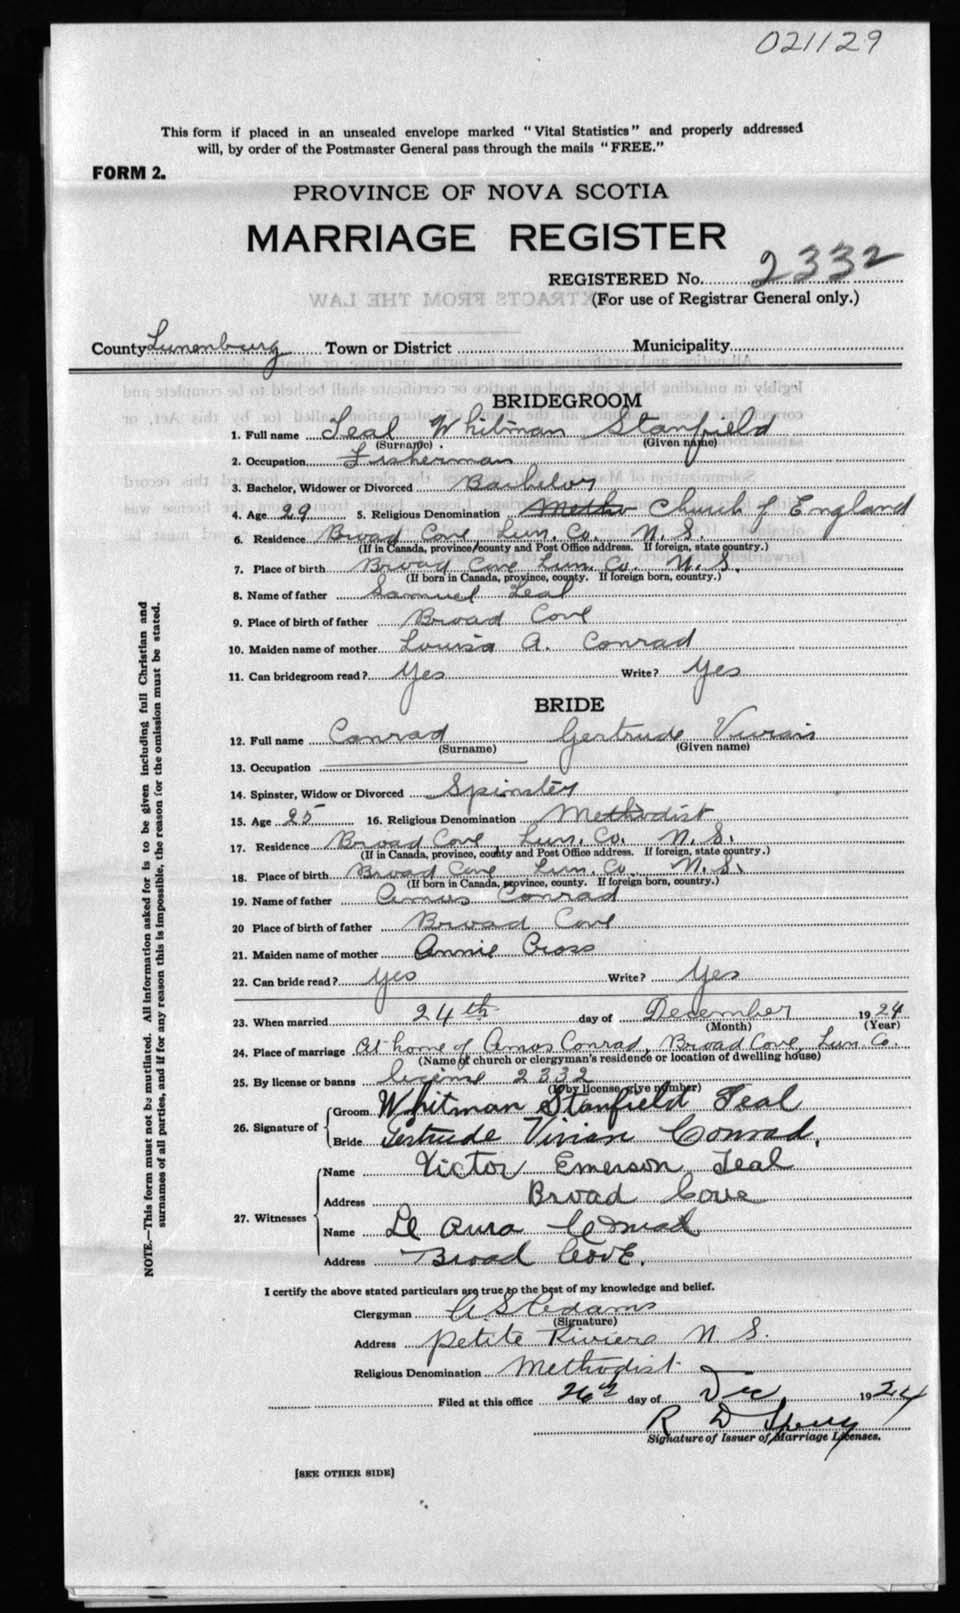 021129
This form if placed in an unsealed envelope marked "Vital Statistics" and properly addressed
will, by order of the Postmaster General pass through the mails "FREE."
FORM 2.
PROVINCE OF NOVA SCOTIA
MARRIAGE REGISTER
REGISTERED No. 2332
(For use of Registrar General only.)
County Lunenburg Town or District Municipality
BRIDEGROOM
1. Full name Teal Whitman Stanfield
(Surname) (Given name)
2. Occupation Fisherman
3. Bachelor, Widower or Divorced Bachelor
4. Age 29 5. Religious Denomination Metho Church of England
6. Residence Broad Cove, Lun. Co. N. S.
(If in Canada, province/county and Post Office address. If foreign, state country.)
7. Place of birth Broad Cove Lun. Co. N. S.
(If born in Canada, province, county. If foreign born, country.)
8. Name of father Samuel Teal
9. Place of birth of father Broad Cove
10. Maiden name of mother Louisa A. Conrad
11. Can bridegroom read? Yes Write? Yes
BRIDE
12. Full name Conrad Gertrude Vivian
(Surname) (Given name)
13. Occupation
14. Spinster, Widow or Divorced Spinster
15. Age 25 16. Religious Denomination Methodist
17. Residence Broad Cove, Lun. Co. N. S.
(If in Canada, province, county and Post Office address. If foreign, state country.)
18. Place of birth Broad Cove Lun. Co. N. S.
(If born in Canada, province, county. If foreign born, country.)
19. Name of father Amos Conrad
20 Place of birth of father Broad Cove
21. Maiden name of mother Annie Cross
22. Can bride read? Yes Write? Yes
23. When married 24th day of December 1924
(Month) (Year)
24. Place of marriage At home of Amos Conrad, Broad Cove, Lun. Co.
(Name of church or clergyman's residence or location of dwelling house)
25. By license or banns license 2332
(If by license give number)
26. Signature of Groom Whitman Stanfield Teal
Bride Gertrude Vivian Conrad.
27. Witnesses Name Victor Emerson Teal
Address Broad Cove
Name Laura Conrad
Address Broad Cove.
I certify the above stated particulars are true to the best of my knowledge and belief.
Clergyman
(Signature)
Address Petite Riviere N. S.
Religious Denomination Methodist
Filed at this office 26th day of Dec 1924
R D Sperry
Signature of Issuer of Marriage Licenses.
[SEE OTHER SIDE]
NOTE.—This form must not be mutilated. All information asked for is to be given including full Christian and
surnames of all parties, and if for any reason this is impossible, the reason for the omission must be stated.